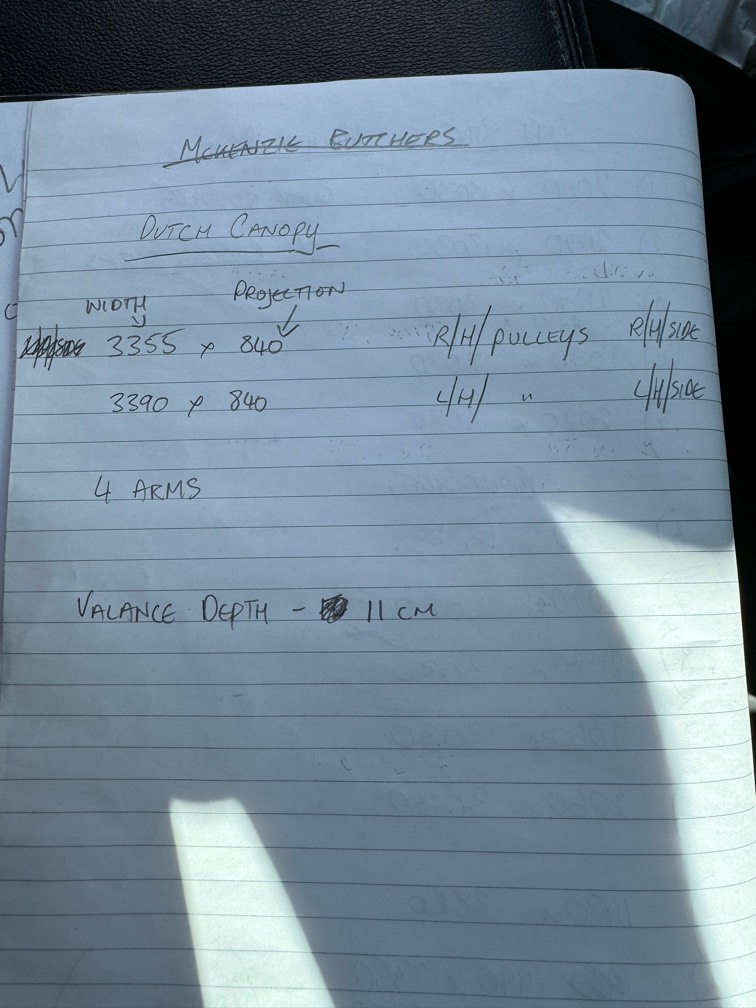 McKENZIE BUTCHERS
DUTCH CANOPY
WIDTH PROJECTION
3355 x 840 R/H/ PULLEYS R/H/SIDE
3390 x 840 L/H/ " L/H/SIDE
4 ARMS
VALANCE DEPTH - 11 CM